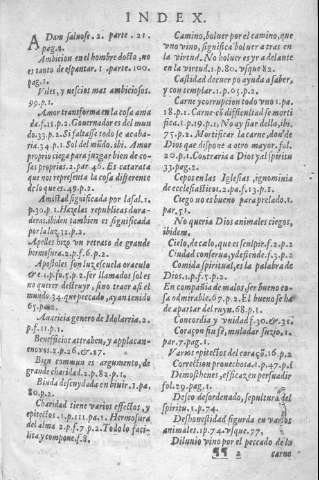 INDEX.
ADan saluose. 2. parte. 21.
pag. 2.
Ambicion en el hombre docto, no
es tanto de espantar. 1. parte. 100.
pag. 1.
Files, y nescios mas ambiciosos.
99. p. 1.
Amor transforma en la cosa ama
da. f. 11. p. 2. Gouernador es del mun
do. 33. p. 2. Si faltasse todo se acaba-
ria. 34. p. 1. Sol del mũdo. ibi. Amor
proprio ciega para juzgar bien de co-
sas proprias. 2. par. 46. Es catarata
que nos representa la cosa diferente
de lo que es. 48. p. 2.
Amistad significada por la sal. 1.
p. 30. p. 1. Hazelas republicas dura-
deras. ibidem tambien es significada
por la luz. 31. p. 2.
Apeles hizo vn retrato de grande
hermosura. 2. p. f. 6. p. 2.
Apostoles son luz escuela oraculo
&c. 1. p. f. 5. p. 2. ser llamados sol es
no querer destruyr, sino traer asi el
mundo. 34. que pecado, ayan tenido
65. p.
Auaricia genero de Idolatria. 2.
p. f. 11. p. 1.
Beneficios atrahen, y applacan-
enoxos. 2. p. 26. & 17.
Bien commun es argumento, de
grande charidad. 2. p. 82. p. 1.
Biuda descuydada en biuir. 1. pa.
80. p. 2.
Charidad tiene varios effectos, y
epitectos. 1. p. 111. pa. 1. Hermosura
del alma 2. p. f. 7. p. 2. Todo lo faci-
lita y compone. f. 8.
Camino, boluer por el camino, que
vno vino, significa boluer atras en
la virtud. No boluer es yr adelante
en la virtud. 1. p. 80. vsque 82.
Castidad decner po ayuda a saber,
y contemplar. 1. p. 63. p. 2.
Carne y corrupcion todo vno 1. pa.
18. p. 1. Carne es difficultad si morti-
fica. 1. p. 19. p. 1. No ay fiar della, ibi.
27. p. 2. Mortificar la carne, don de
Dios que dispone a otro mayor. fol.
20. p. 1. Contraria a Dios y al spiritu
33. pag. 2.
Cepos en las Iglesias, ignominia
de ecclesiasticos. 2. pa. f. 13. p. 1.
Ciego no es bueno para prelado. 1.
par. 51.
No queria Dios animales ciegos,
ibidem.
Cielo, de calo, que es sculpir. f. 2. p. 2
Ciudad conserua, y desiende. f. 3. p. 2
Comida spiritual, es la palabra de
Dios. 1. p. f. 5. p. 2.
En compañia de malos, ser bueno co-
sa admirable. 67. p. 2. El bueno se ha
de apartar del ruyn. 68. p. 1.
Concordia y vnidad f. 30. & 31.
Coraçon sin fè, muladar suzio. 1.
par. 7. pag. 1.
Varios epitectos del coraçõ. 16. p. 2
Correction prouechosa. 1. p. 47. p. 1
Demosthenes, efficaz en persuadir
fol. 29. pag. 1.
Desco desordenado, sepultura del
spiritu. 1. p. 74.
Deshonestidad figurda en varios
animales. 1. p. 74. vsque. 77.
Diluuio vino por el peccado de la
¶¶ 2 carne